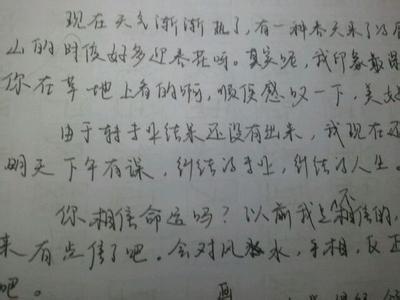 现在天气渐渐热了，有一种春天来了的
山的时候好多迎春花呀。其实呢，我印象最
你在草地上看的啊，顺便感叹一下，美
由于转专业结果还没有出来，我现在还
明天下午有课，纠结的专业，纠结的人生。
你相信命运吗？以前我是不相信的，
来有点信了吧。会对风水，手相，反正
吧。